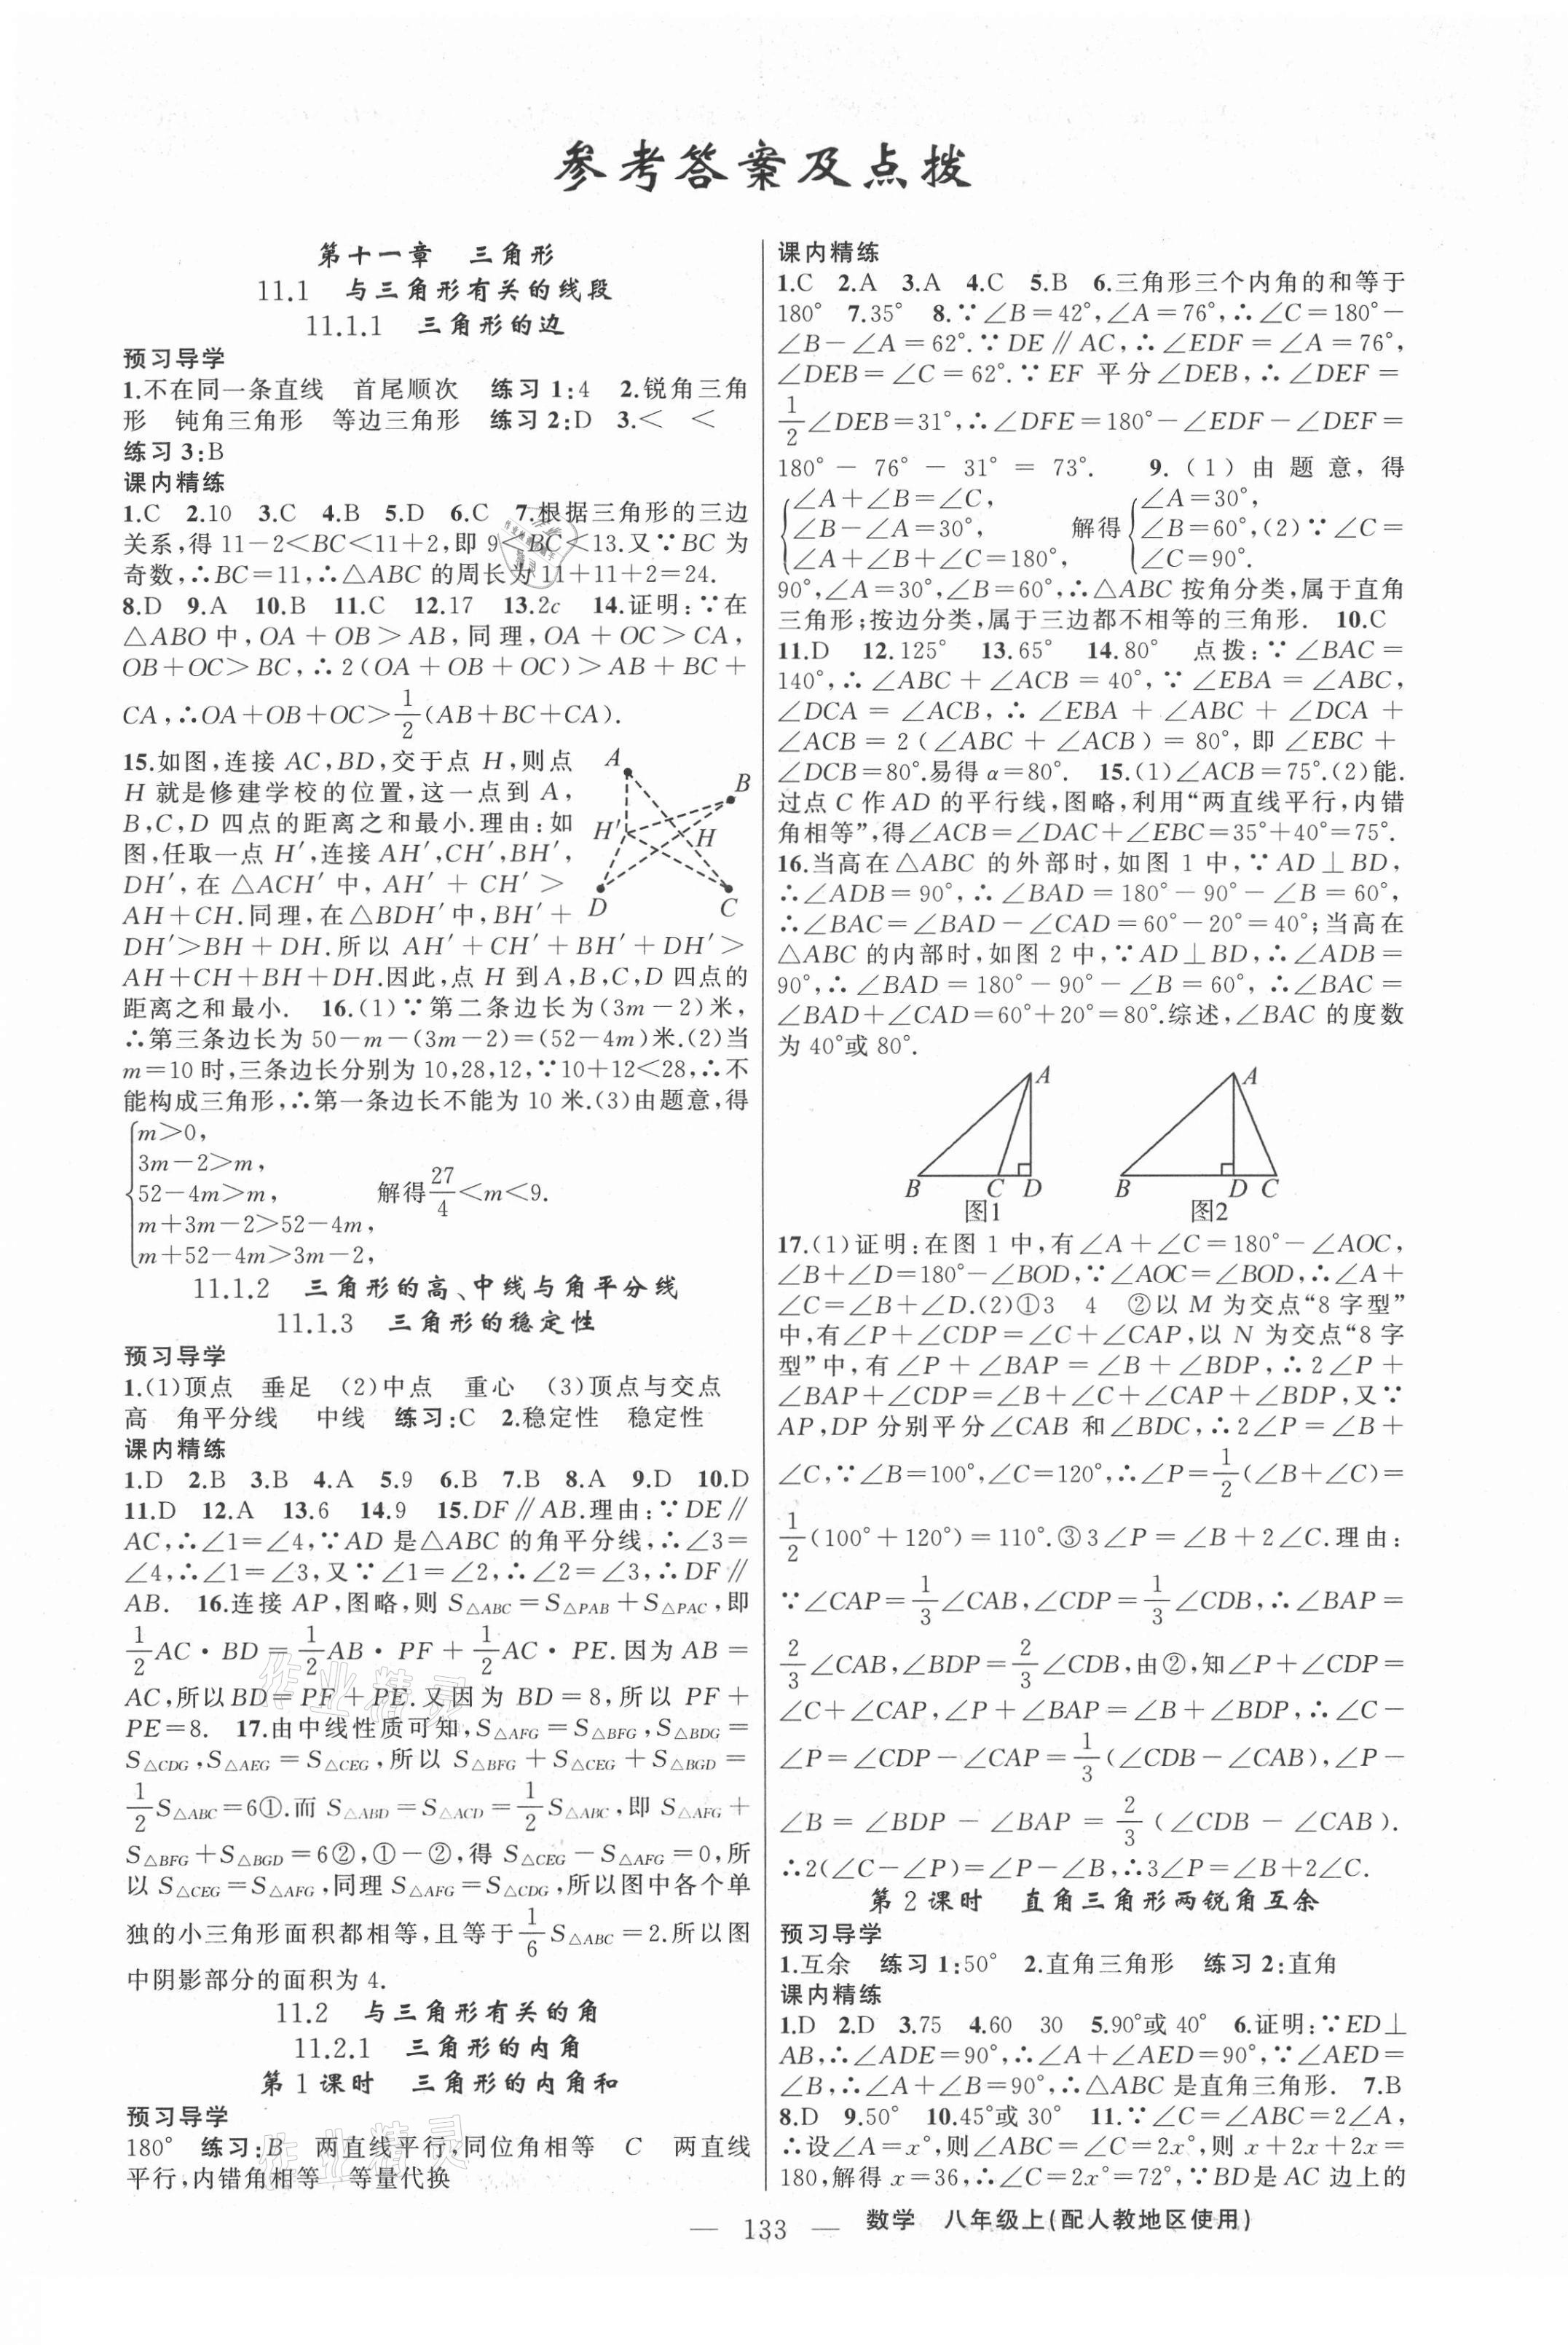 参考答案及点拨
第十一章　三角形
11.1　与三角形有关的线段
11.1.1　三角形的边
预习导学
1.不在同一条直线　首尾顺次　练习1:4　2.锐角三角
形　钝角三角形　等边三角形　练习2:D　3.＜　＜
练习3:B
课内精练
1.C　2.10　3.C　4.B　5.D　6.C　7.根据三角形的三边
关系,得11－2＜BC＜11＋2,即9＜BC＜13.又∵BC为
奇数,∴BC＝11,∴△ABC的周长为11＋11＋2＝24.
8.D　9.A　10.B　11.C　12.17　13.2c　14.证明:∵在
△ABO中,OA＋OB＞AB,同理,OA＋OC＞CA,
OB＋OC＞BC,∴2(OA＋OB＋OC)＞AB＋BC＋
CA,∴OA＋OB＋OC＞1/2(AB＋BC＋CA).
15.如图,连接AC,BD,交于点H,则点
H就是修建学校的位置,这一点到A,
B,C,D四点的距离之和最小.理由:如
图,任取一点H′,连接AH′,CH′,BH′,
DH′,在△ACH′中,AH′＋CH′＞
AH＋CH.同理,在△BDH′中,BH′＋
DH′＞BH＋DH.所以AH′＋CH′＋BH′＋DH′＞
AH＋CH＋BH＋DH.因此,点H到A,B,C,D四点的
距离之和最小.　16.(1)∵第二条边长为(3m－2)米,
∴第三条边长为50－m－(3m－2)＝(52－4m)米.(2)当
m＝10时,三条边长分别为10,28,12,∵10＋12＜28,∴不
能构成三角形,∴第一条边长不能为10米.(3)由题意,得
m＞0,
3m－2＞m,
52－4m＞m,　解得27/4＜m＜9.
m＋3m－2＞52－4m,
m＋52－4m＞3m－2,
A
B
H′
H
D
C
11.1.2　三角形的高、中线与角平分线
11.1.3　三角形的稳定性
预习导学
1.(1)顶点　垂足　(2)中点　重心　(3)顶点与交点
高　角平分线　中线　练习:C　2.稳定性　稳定性
课内精练
1.D　2.B　3.B　4.A　5.9　6.B　7.B　8.A　9.D　10.D
11.D　12.A　13.6　14.9　15.DF∥AB.理由:∵DE∥
AC,∴∠1＝∠4,∵AD是△ABC的角平分线,∴∠3＝
∠4,∴∠1＝∠3,又∵∠1＝∠2,∴∠2＝∠3,∴DF∥
AB.　16.连接AP,图略,则S△ABC＝S△PAB＋S△PAC,即
1/2AC·BD＝1/2AB·PF＋1/2AC·PE.因为AB＝
AC,所以BD＝PF＋PE.又因为BD＝8,所以PF＋
PE＝8.　17.由中线性质可知,S△AFG＝S△BFG,S△BDG＝
S△CDG,S△AEG＝S△CEG,所以S△BFG＋S△CEG＋S△BGD＝
1/2S△ABC＝6①.而S△ABD＝S△ACD＝1/2S△ABC,即S△AFG＋
S△BFG＋S△BGD＝6②,①－②,得S△CEG－S△AFG＝0,所
以S△CEG＝S△AFG,同理S△AFG＝S△CDG,所以图中各个单
独的小三角形面积都相等,且等于1/6S△ABC＝2.所以图
中阴影部分的面积为4.
11.2　与三角形有关的角
11.2.1　三角形的内角
第1课时　三角形的内角和
预习导学
180°　练习:B　两直线平行,同位角相等　C　两直线
平行,内错角相等　等量代换
课内精练
1.C　2.A　3.A　4.C　5.B　6.三角形三个内角的和等于
180°　7.35°　8.∵∠B＝42°,∠A＝76°,∴∠C＝180°－
∠B－∠A＝62°.∵DE∥AC,∴∠EDF＝∠A＝76°,
∠DEB＝∠C＝62°.∵EF平分∠DEB,∴∠DEF＝
1/2∠DEB＝31°,∴∠DFE＝180°－∠EDF－∠DEF＝
180°－76°－31°＝73°.　9.(1)由题意,得
∠A＋∠B＝∠C,　∠A＝30°,
∠B－∠A＝30°,　解得　∠B＝60°,(2)∵∠C＝
∠A＋∠B＋∠C＝180°,　∠C＝90°.
90°,∠A＝30°,∠B＝60°,∴△ABC按角分类,属于直角
三角形;按边分类,属于三边都不相等的三角形.　10.C
11.D　12.125°　13.65°　14.80°　点拨:∵∠BAC＝
140°,∴∠ABC＋∠ACB＝40°,∵∠EBA＝∠ABC,
∠DCA＝∠ACB,∴∠EBA＋∠ABC＋∠DCA＋
∠ACB＝2(∠ABC＋∠ACB)＝80°,即∠EBC＋
∠DCB＝80°.易得α＝80°.　15.(1)∠ACB＝75°.(2)能.
过点C作AD的平行线,图略,利用“两直线平行,内错
角相等”,得∠ACB＝∠DAC＋∠EBC＝35°＋40°＝75°.
16.当高在△ABC的外部时,如图1中,∵AD⊥BD,
∴∠ADB＝90°,∴∠BAD＝180°－90°－∠B＝60°,
∴∠BAC＝∠BAD－∠CAD＝60°－20°＝40°;当高在
△ABC的内部时,如图2中,∵AD⊥BD,∴∠ADB＝
90°,∴∠BAD＝180°－90°－∠B＝60°,∴∠BAC＝
∠BAD＋∠CAD＝60°＋20°＝80°.综述,∠BAC的度数
为40°或80°.
A　A
B　C　D　B　D　C
图1　图2
17.(1)证明:在图1中,有∠A＋∠C＝180°－∠AOC,
∠B＋∠D＝180°－∠BOD,∵∠AOC＝∠BOD,∴∠A＋
∠C＝∠B＋∠D.(2)①3　4　②以M为交点“8字型”
中,有∠P＋∠CDP＝∠C＋∠CAP,以N为交点“8字
型”中,有∠P＋∠BAP＝∠B＋∠BDP,∴2∠P＋
∠BAP＋∠CDP＝∠B＋∠C＋∠CAP＋∠BDP,又∵
AP,DP分别平分∠CAB和∠BDC,∴2∠P＝∠B＋
∠C,∵∠B＝100°,∠C＝120°,∴∠P＝1/2(∠B＋∠C)＝
1/2(100°＋120°)＝110°.③3∠P＝∠B＋2∠C.理由:
∵∠CAP＝1/3∠CAB,∠CDP＝1/3∠CDB,∴∠BAP＝
2/3∠CAB,∠BDP＝2/3∠CDB,由②,知∠P＋∠CDP＝
∠C＋∠CAP,∠P＋∠BAP＝∠B＋∠BDP,∴∠C－
∠P＝∠CDP－∠CAP＝1/3(∠CDB－∠CAB),∠P－
∠B＝∠BDP－∠BAP＝2/3(∠CDB－∠CAB).
∴2(∠C－∠P)＝∠P－∠B,∴3∠P＝∠B＋2∠C.
第2课时　直角三角形两锐角互余
预习导学
1.互余　练习1:50°　2.直角三角形　练习2:直角
课内精练
1.D　2.D　3.75　4.60　30　5.90°或40°　6.证明:∵ED⊥
AB,∴∠ADE＝90°,∴∠A＋∠AED＝90°,∵∠AED＝
∠B,∴∠A＋∠B＝90°,∴△ABC是直角三角形.　7.B
8.D　9.50°　10.45°或30°　11.∵∠C＝∠ABC＝2∠A,
∴设∠A＝x°,则∠ABC＝∠C＝2x°,则x＋2x＋2x＝
180,解得x＝36,∴∠C＝2x°＝72°,∵BD是AC边上的
— 133 —　数学　八年级上(配人教地区使用)
作业精灵
作业精灵